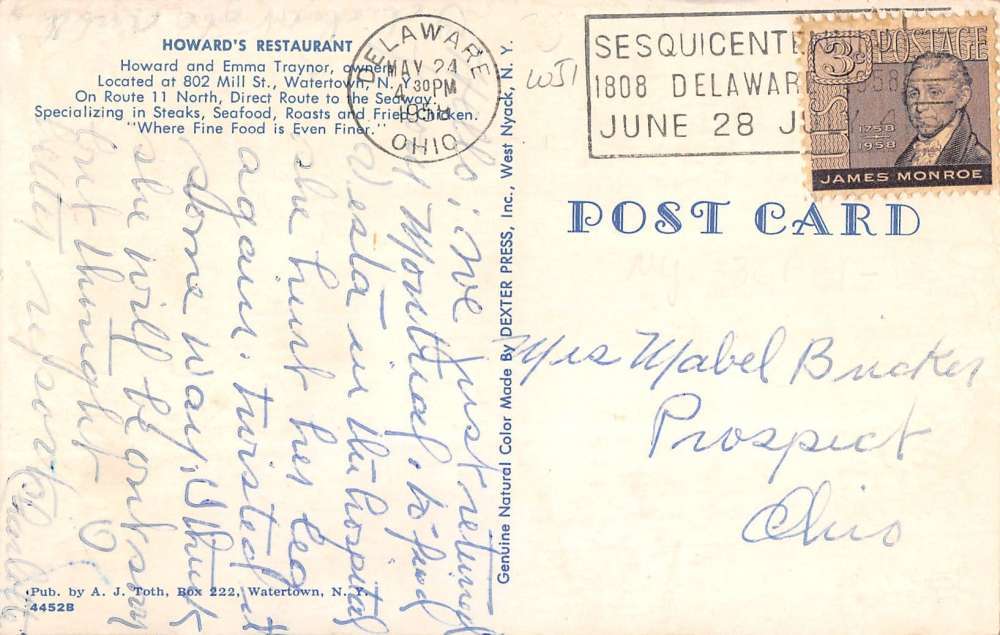 HOWARD'S RESTAURANT
Howard and Emma Traynor, owners
Located at 802 Mill St., Watertown, N. Y.
On Route 11 North, Direct Route to the Seaway.
Specializing in Steaks, Seafood, Roasts and Fried Chicken.
"Where Fine Food is Even Finer."
DELAWARE
MAY 24
4 30 PM
1958
OHIO
WJ1
SESQUICENTE
1808 DELAWAR 1958
JUNE 28 JUL 4
3¢ U.S. POSTAGE
1758
1958
JAMES MONROE
POST CARD
Genuine Natural Color Made By DEXTER PRESS, Inc., West Nyack, N. Y.
Hello; we just returned
Montreal, to find
Westa in the hospital
she hurt her leg
again. twisted it
some way. I think
she will be ok soon
but thought
Charlotte
Mrs Mabel Bricker
Prospect
Ohio
Pub. by A. J. Toth, Box 222, Watertown, N. Y.
4452B